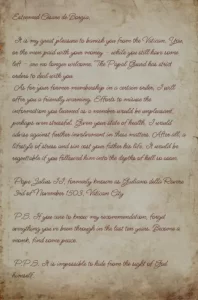 Esteemed Cesare de Borgia,
It is my great pleasure to banish you from the Vatican. You
are the man paid with your money - while you still have some
left - are no longer welcome. The Papal Guard has strict
orders to deal with you.
As for your former membership in a certain order, I will
offer you a friendly warning. Efforts to misuse the
information you learned as a member would be unpleasant,
perhaps even stressful. Given your state of health, I would
advise against further involvement in these matters. After all, a
lifestyle of stress and sin cost your father his life. It would be
regrettable if you followed him into the depths of hell so soon.
Pope Julius II, formerly known as Giuliano della Rovere
3rd of November 1503, Vatican City
P.S. If you care to know my recommendation, forget
everything you've been through on the last ten years. Become a
monk, find some peace.
P.P.S. It is impossible to hide from the sight of God
himself.